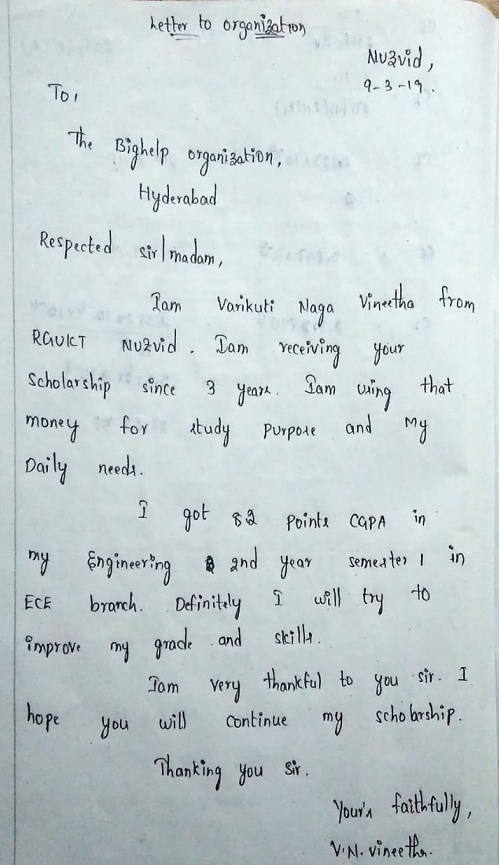 Letter to organization
Nuzvid,
9-3-19.
To,
The Bighelp organization,
Hyderabad
Respected sir/madam,
Iam Varikuti Naga Vineetha from
RGUKT Nuzvid. Iam receiving your
Scholarship since 3 years. Iam using that
money for study purpose and My
Daily needs.
I got 82 points CGPA in
my Engineering 2nd year semester 1 in
ECE branch. Definitely I will try to
improve my grade and skills.
Iam very thankful to you sir. I
hope you will continue my scholarship.
Thanking you Sir.
Your's faithfully,
V.N.vineetha.